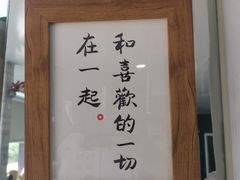 和喜歡的一切
在一起